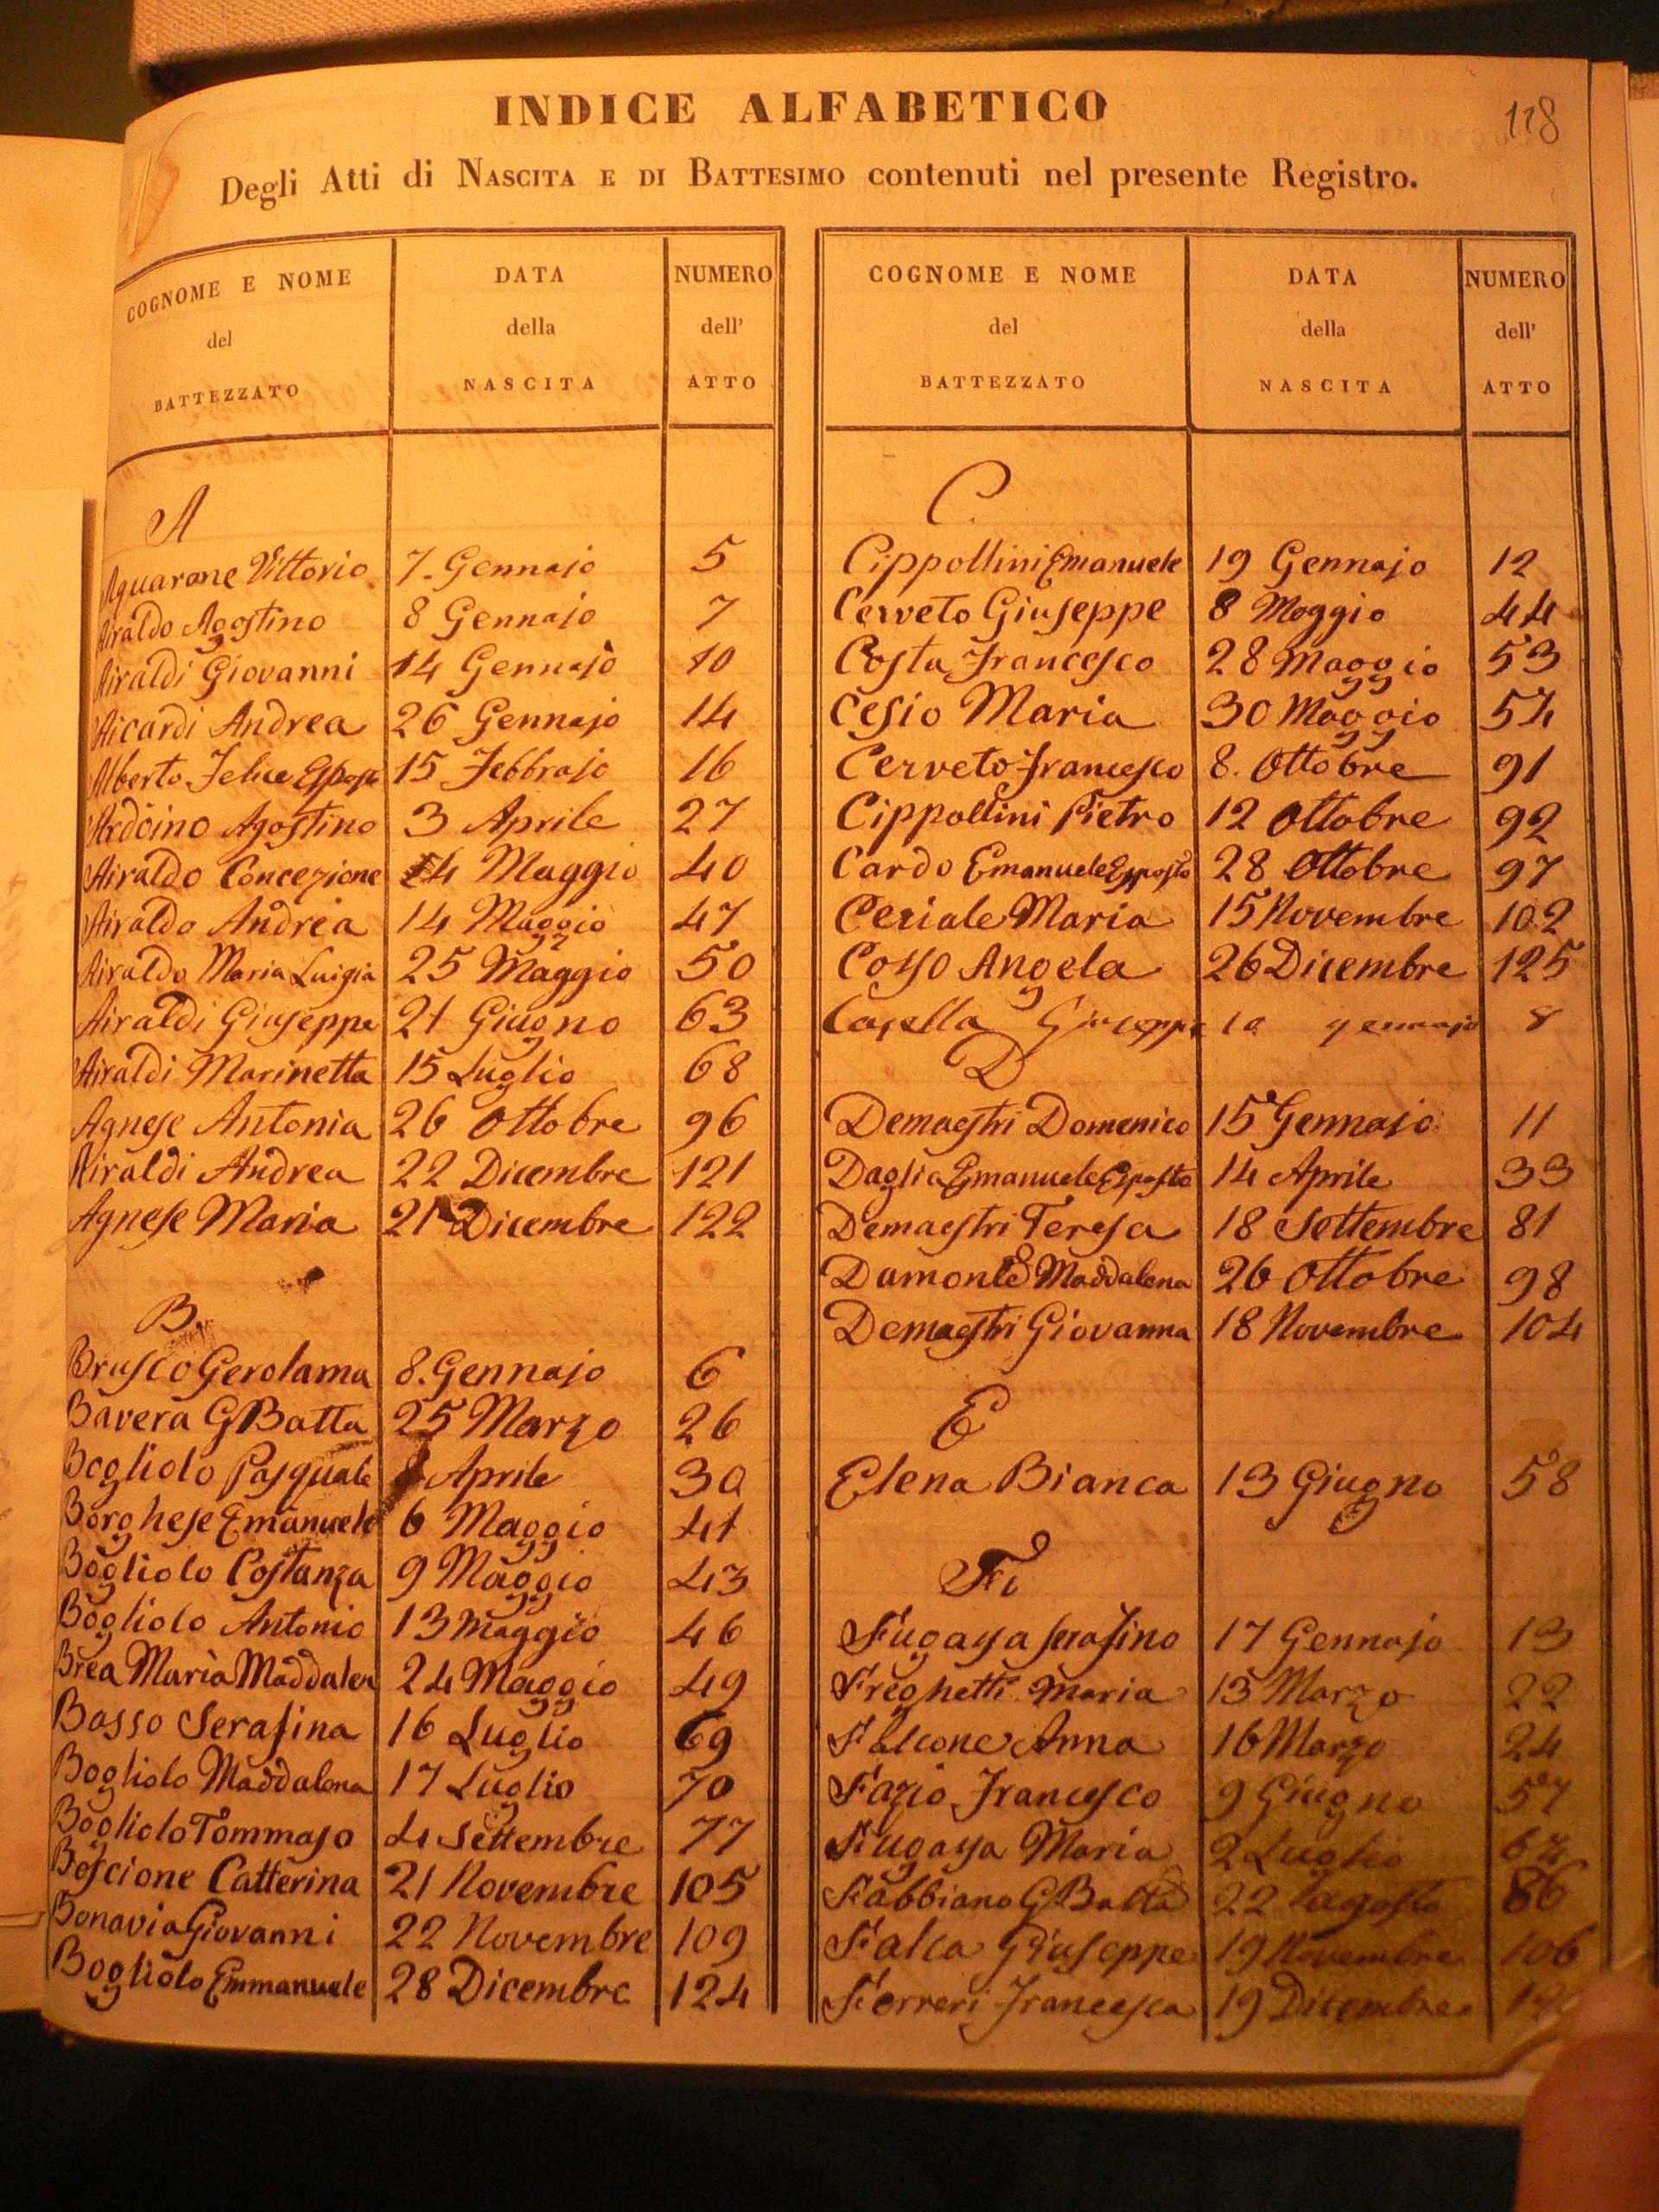 118
INDICE ALFABETICO
Degli Atti di NASCITA E DI BATTESIMO contenuti nel presente Registro.
COGNOME E NOME del BATTEZZATO DATA della NASCITA NUMERO dell' ATTO
A
Aquarone Vittorio 7. Gennajo 5
Airaldo Agostino 8 Gennajo 7
Airaldi Giovanni 14 Gennajo 10
Aicardi Andrea 26 Gennajo 14
Alberto Felice Esposto 15 Febbrajo 16
Ardoino Agostino 3 Aprile 27
Airaldo Concezione 4 Maggio 40
Airaldo Andrea 14 Maggio 47
Airaldo Maria Luigia 25 Maggio 50
Airaldi Giuseppe 21 Giugno 63
Airaldi Marinetta 15 Luglio 68
Agnese Antonia 26 Ottobre 96
Airaldi Andrea 22 Dicembre 121
Agnese Maria 21 Dicembre 122
B.
Brusco Gerolama 8. Gennajo 6
Bavera G Batta 25 Marzo 26
Bogliolo Pasquale Aprile 30
Borghese Emanuele 6 Maggio 41
Bogliolo Costanza 9 Maggio 43
Bogliolo Antonio 13 Maggio 46
Brea Maria Maddalen 24 Maggio 49
Basso Serafina 16 Luglio 69
Bogliolo Maddalena 17 Luglio 70
Bogliolo Tommaso 4 Settembre 77
Boscione Catterina 21 Novembre 105
Bonavia Giovanni 22 Novembre 109
Bogliolo Emmanuele 28 Dicembre 124
COGNOME E NOME del BATTEZZATO DATA della NASCITA NUMERO dell' ATTO
C.
Cippollini Emanuele 19 Gennajo 12
Cerveto Giuseppe 8 Maggio 44
Costa Francesco 28 Maggio 53
Cesio Maria 30 Maggio 54
Cerveto Francesco 8. Ottobre 91
Cippollini Pietro 12 Ottobre 92
Cardo Emanuele Esposto 28 Ottobre 97
Ceriale Maria 15 Novembre 102
Cosso Angela 26 Dicembre 125
Casella Giuseppe 10 gennajo 8
D
Demaestri Domenico 15 Gennajo 11
Daglia Emanuele Esposto 14 Aprile 33
Demaestri Teresa 18 Settembre 81
Damonte Maddalena 26 Ottobre 98
Demaestri Giovanna 18 Novembre 104
E
Elena Bianca 13 Giugno 58
F
Fugassa Serafino 17 Gennajo 13
Freghetti Maria 13 Marzo 22
Falcone Anna 16 Marzo 24
Fazio Francesco 9 Giugno 57
Fugassa Maria 2 Luglio
Fabbiano G Batta 22 agosto 86
Falca Giuseppe 19 Novembre 106
Ferreri Francesca 19 Dicembre